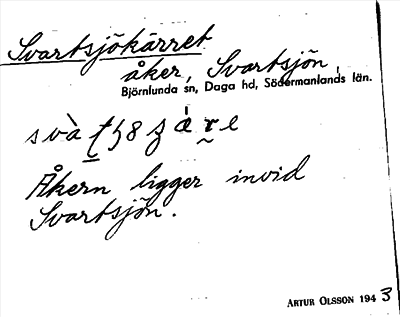 Svartsjökärret
åker, Svartsjön,
Björnlunda sn, Daga hd, Södermanlands län.
Åkern ligger invid
Svartsjön.
ARTUR OLSSON 1943